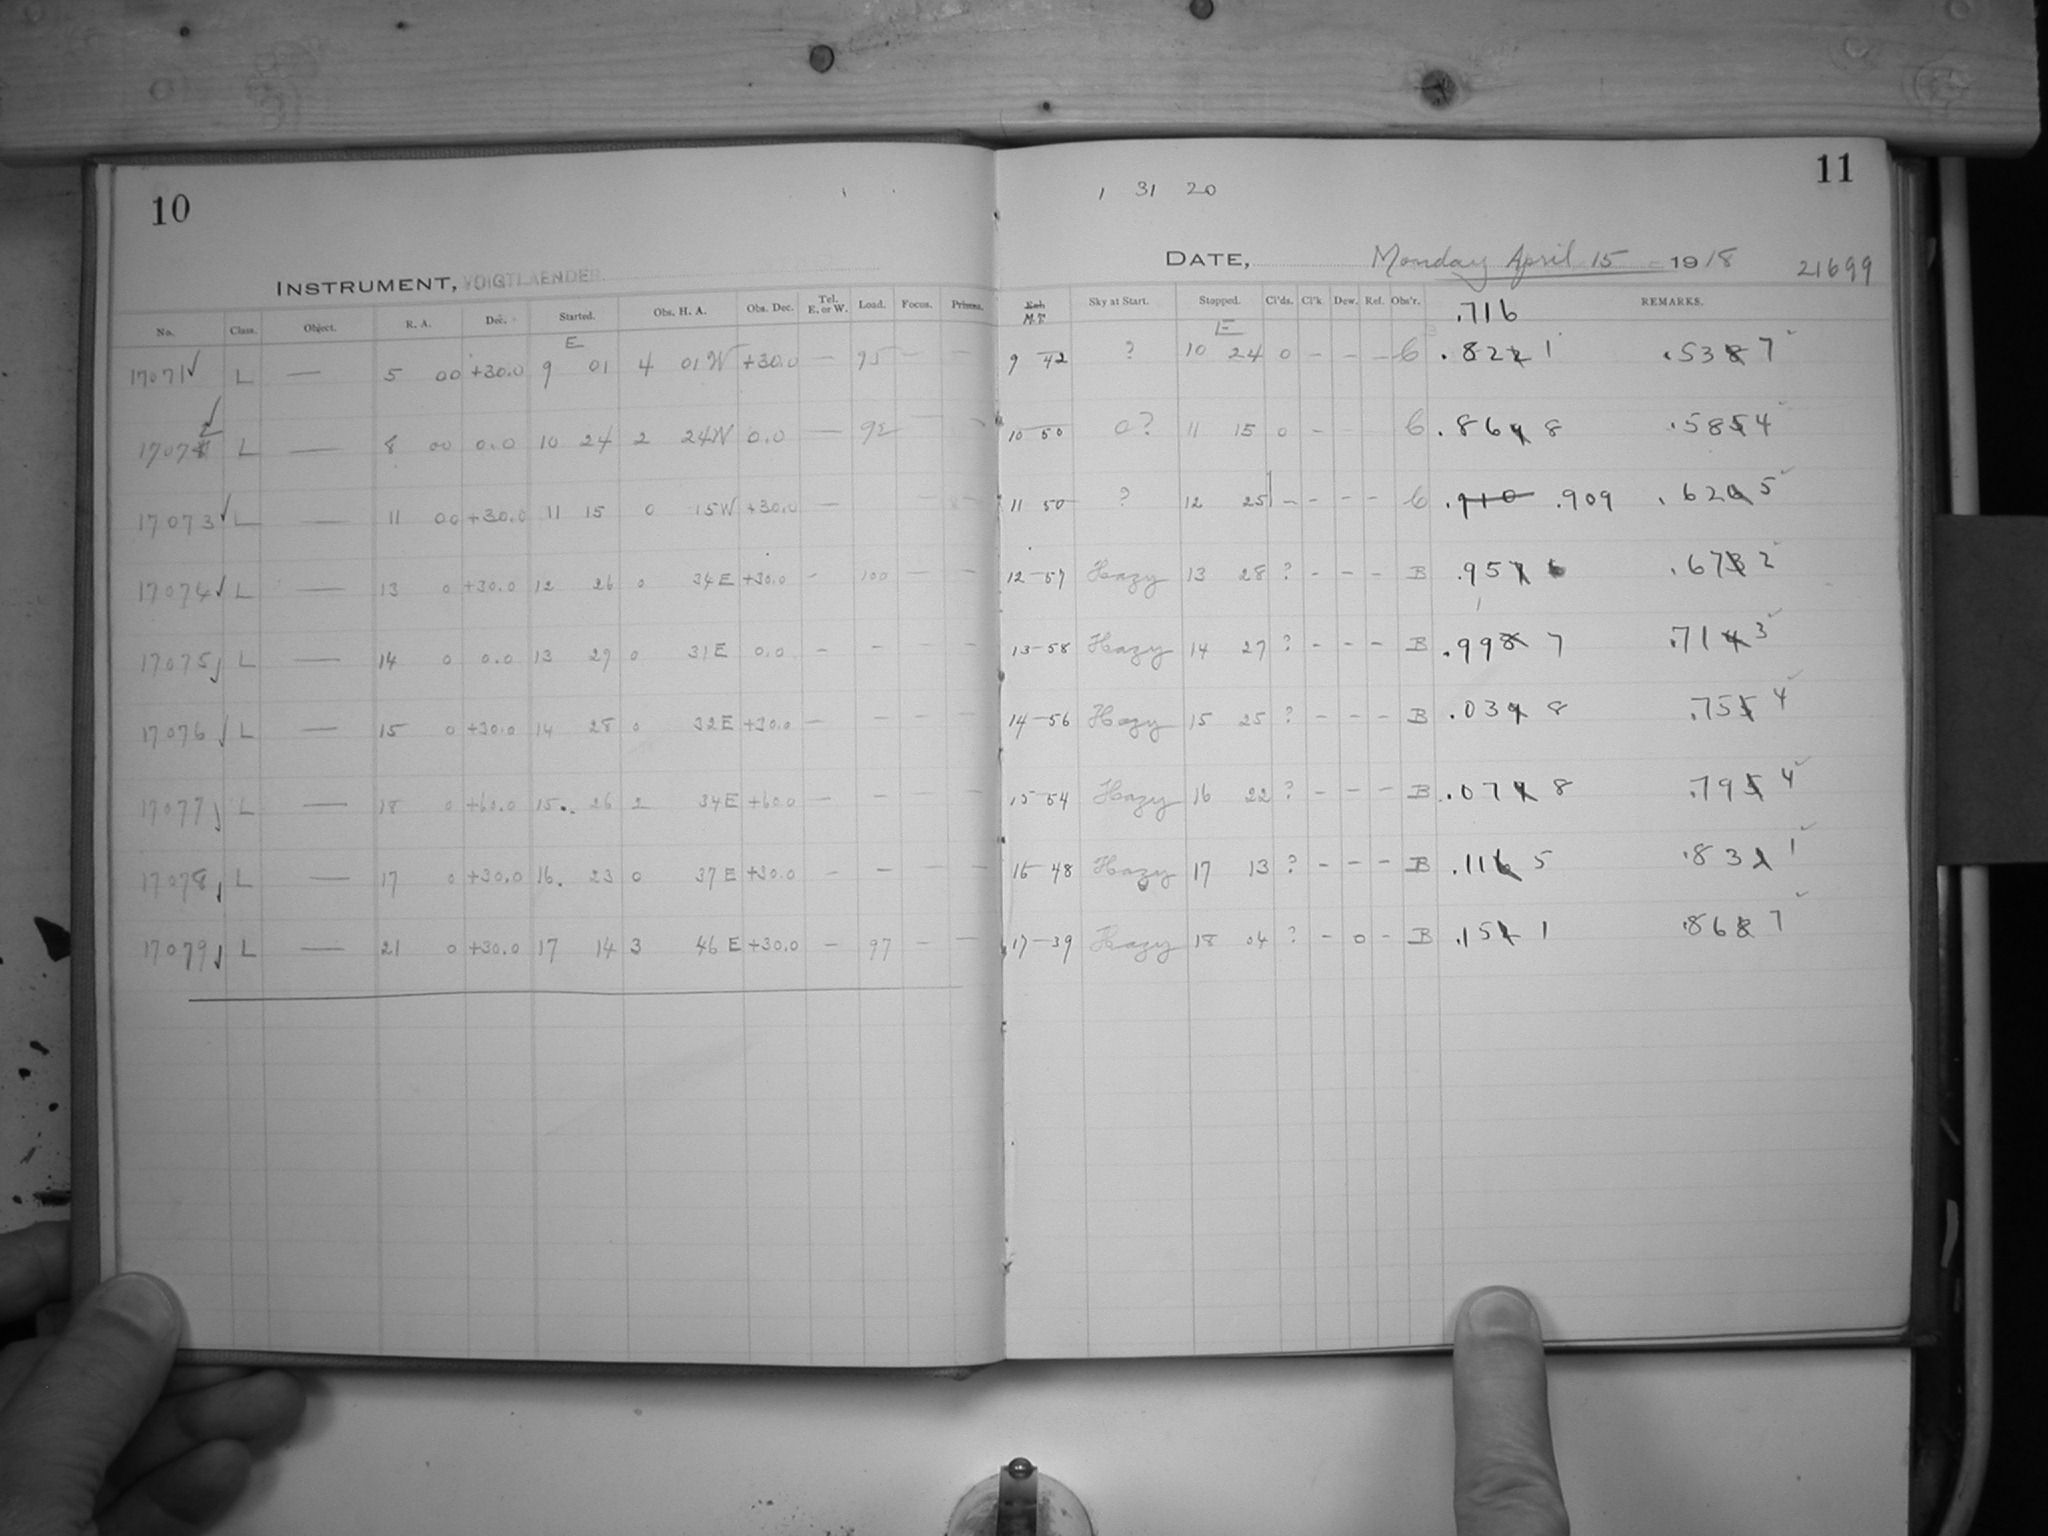 10
INSTRUMENT, VOIGTLAENDER.
No. Class. Object. R. A. Dec. Started. Obs. H. A. Obs. Dec. Tel. E. or W. Load. Focus. Prisms.
E
17071 ✓ L — 5 00 +30.0 9 01 4 01 W +30.0 — 95 — —
17072 ✓ L — 8 00 0.0 10 24 2 24 W 0.0 — 92 —
17073 ✓ L — 11 00 +30.0 11 15 0 15 W +30.0 —
17074 ✓ L — 13 0 +30.0 12 26 0 34 E +30.0 - 100 — —
17075 ✓ L — 14 0 0.0 13 29 0 31 E 0.0 - - — —
17076 ✓ L — 15 0 +30.0 14 28 0 32 E +30.0 — - — —
17077 ✓ L — 18 0 +60.0 15 26 2 34 E +60.0 — - — —
17078 ✓ L — 17 0 +30.0 16. 23 0 37 E +30.0 - — — —
17079 ✓ L — 21 0 +30.0 17 14 3 46 E +30.0 - 97 — —
1 31 20
11
DATE, Monday April 15 1918 21699
M.T. Sky at Start. Stopped. Cl'ds. Cl'k. Dew. Ref. Obs'r. REMARKS.
.716
E
9 42 ? 10 24 0 - - - C .821 .537
10 50 0? 11 15 0 - C .868 .584
11 50 ? 12 25 - - - - C .910 .909 .625
12-57 Hazy 13 28 ? - - - B .956 .672
13-58 Hazy 14 27 ? - - - B .997 .713
14-56 Hazy 15 25 ? - - - B .038 .754
15-54 Hazy 16 22 ? - - - B .078 .794
16-48 Hazy 17 13 ? - - - B .115 .831
17-39 Hazy 18 04 ? - 0 - B .151 .867